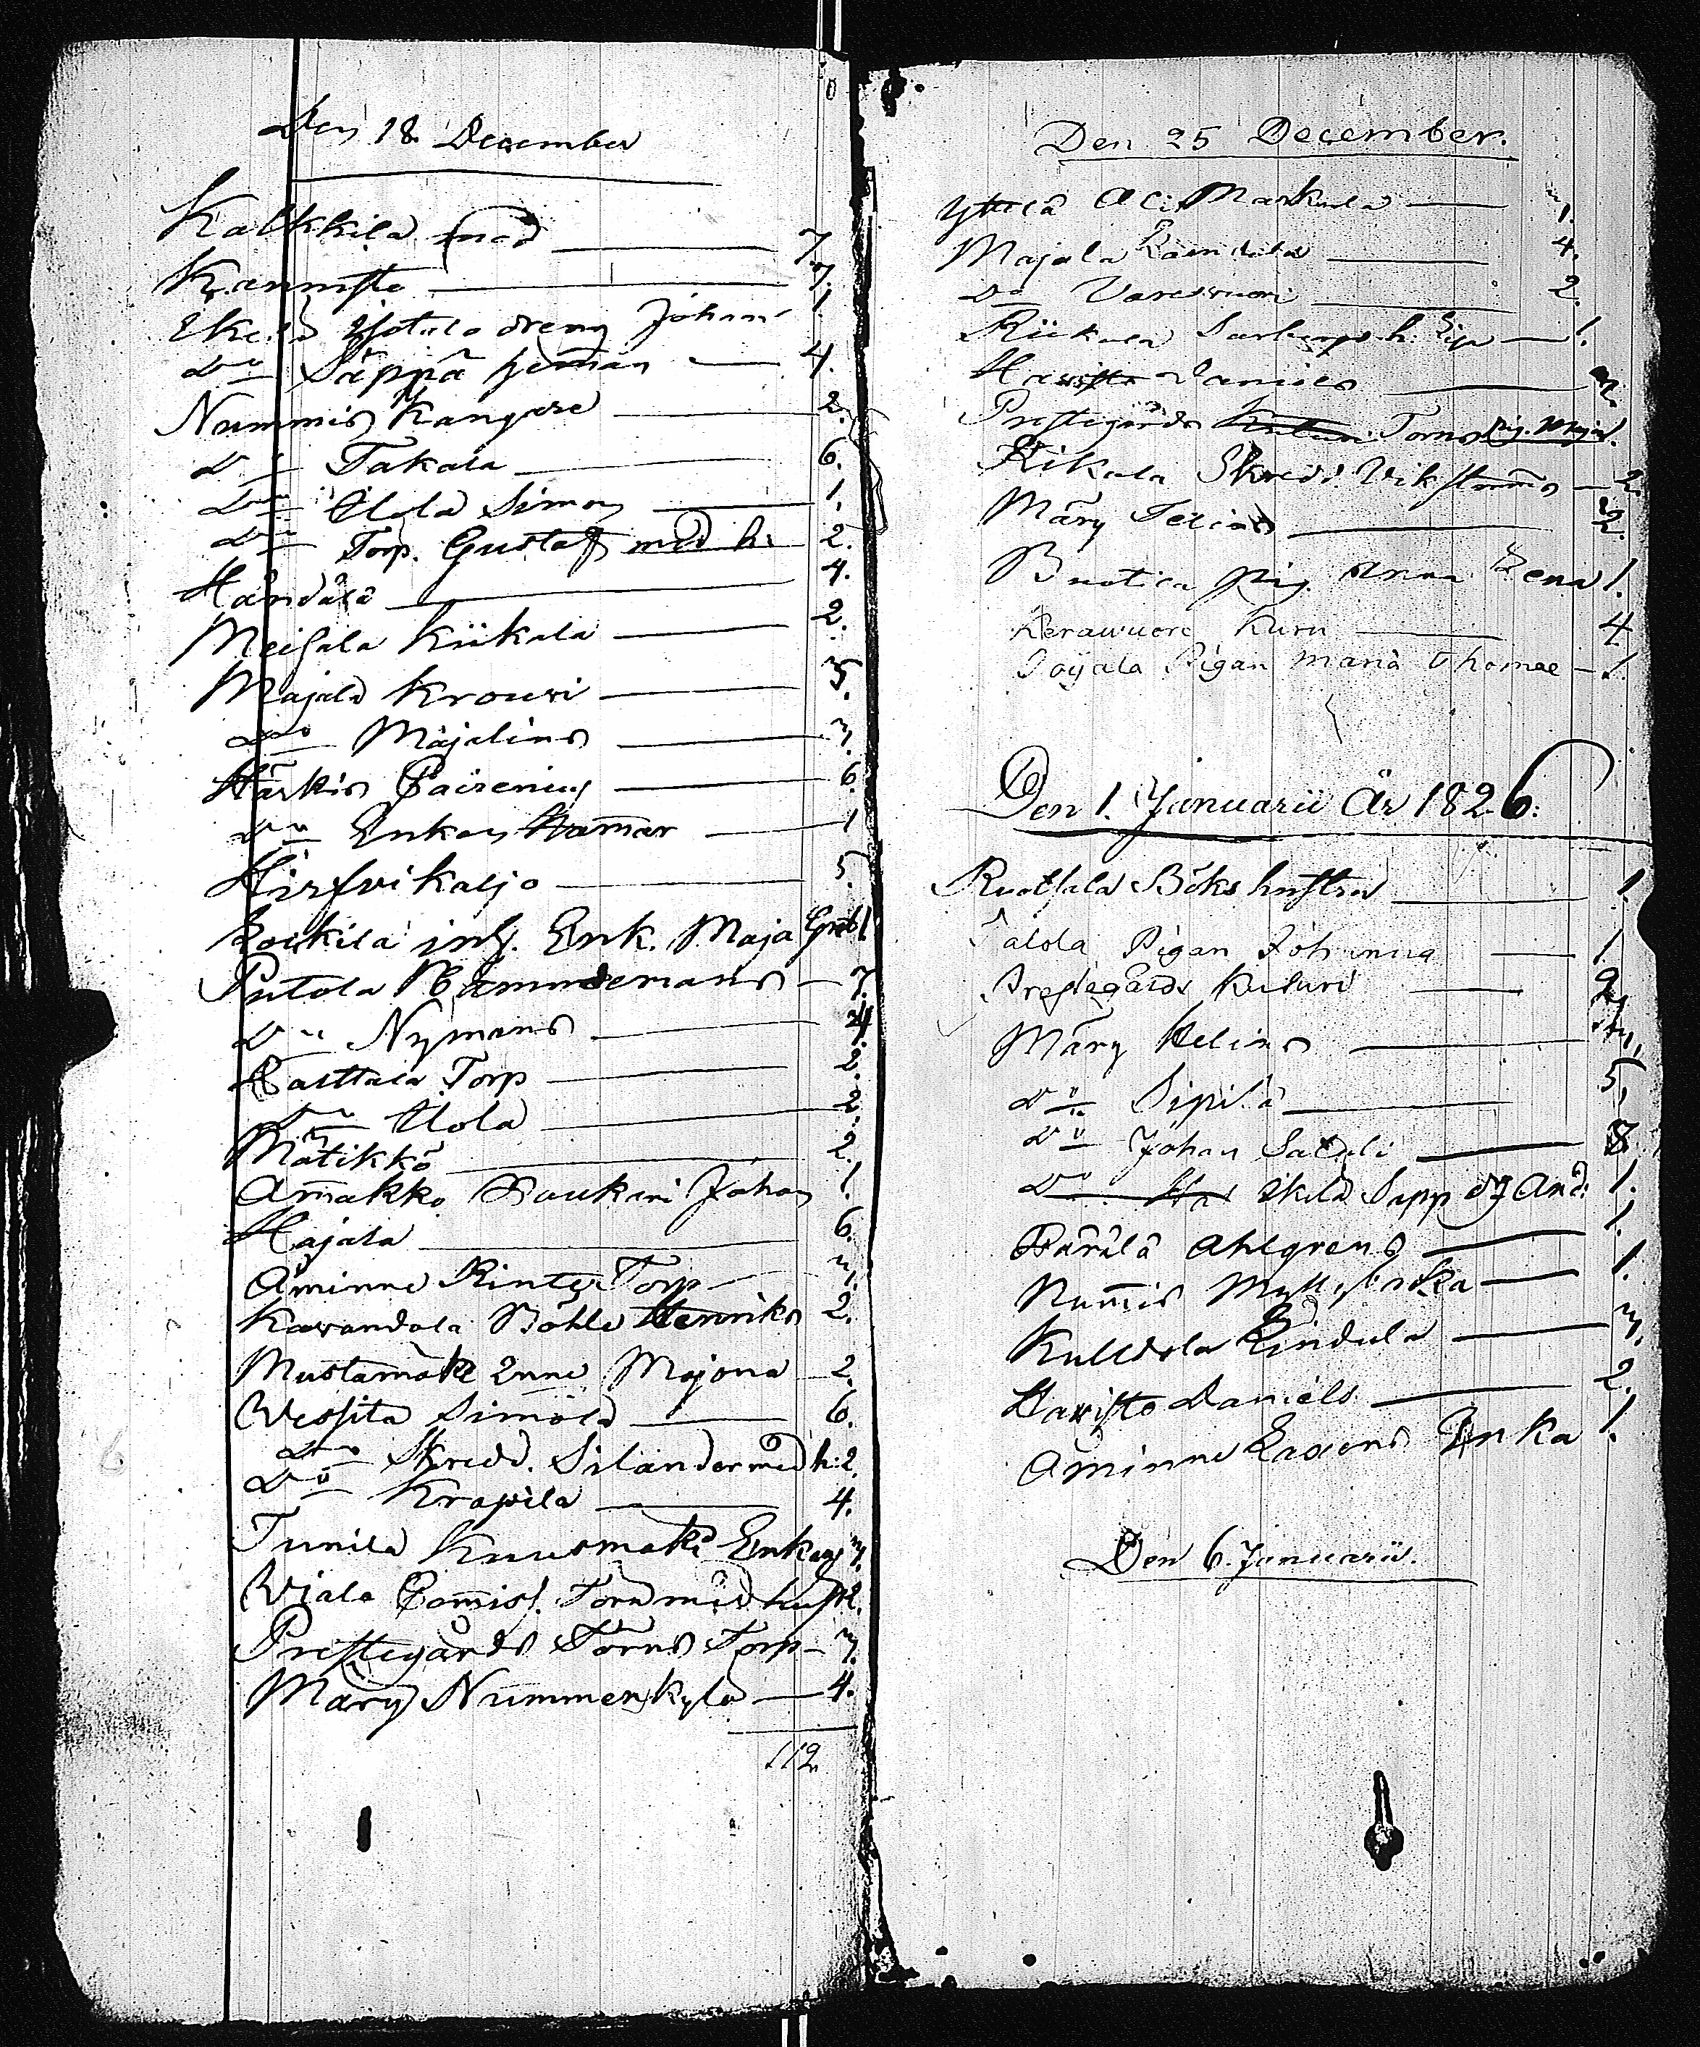 Den 18. December
Kalkkila med 7.
Kannisto 7.
Ekela Yotala dreng Johan 1
Do Säppä jemän 4.
Nummis Kangare 2.
Do Takala 6.
Do Ulola Simon 1.
Do Torp. Gustaf med h: 2.
Händälä 4.
Meisala Kiikala 2.
Majala Krouvi 5.
Do Mäjalins 3.
Härkis Päirenius 6.
Do Enkan Hamar 1
Hirfvikaljo 5.
Loikila inh. Enk. Maja Grèt 1
Putola Nummdemans 7.
Do Nymans 4.
Rasttala Torp 2.
Do Ulola 2.
Mätikkö 2.
Amakko Raukari Johan 1.
Hajala 6.
Åminne Rinte Torp 3.
Kavandola Böhle Henriks 2.
Mustamäke Enne Majona 2.
Wessita Simola 6.
Do Skredd. Silander med h: 2.
Do Krapila 4.
Tunila Kuusmaki Enkan 3.
Wiala Comiss. Torn med hust 2.
Prestegårds Törns Torp 3.
Märy Nummenkyla 4.
112
Den 25 December.
Yttelä Ali Markula 3.
Majala Laendala 4.
Do Varesvuori 2.
Riikala h. 1.
Havisto Daniels 2.
Prestegårds Kuturi Torns pig. Maja 1.
Kikala Skredd Vikströms 2.
Märy Telins 2.
Buotila pig. Anna Lena 1.
Kerawuore Kuru 4
Soijala Pigan Maria Thomae 1.
Den 1. Januarii År 1826.
Ruotsala Böks hustru 1.
Talola Pigan Johanna 1
Prestegårds Kuturi 2
Märy Helins
Do Sipilä 5,
Do Johan Saloli 8
Do Ekela Sapp dg And: 1.
Pärälä Ahlgrens 1.
Numis Myllyinska 1.
Kulldola Lindula 3.
Havisto Daniels 2.
Åminne Laxens Enka 1.
Den 6. Januarii.